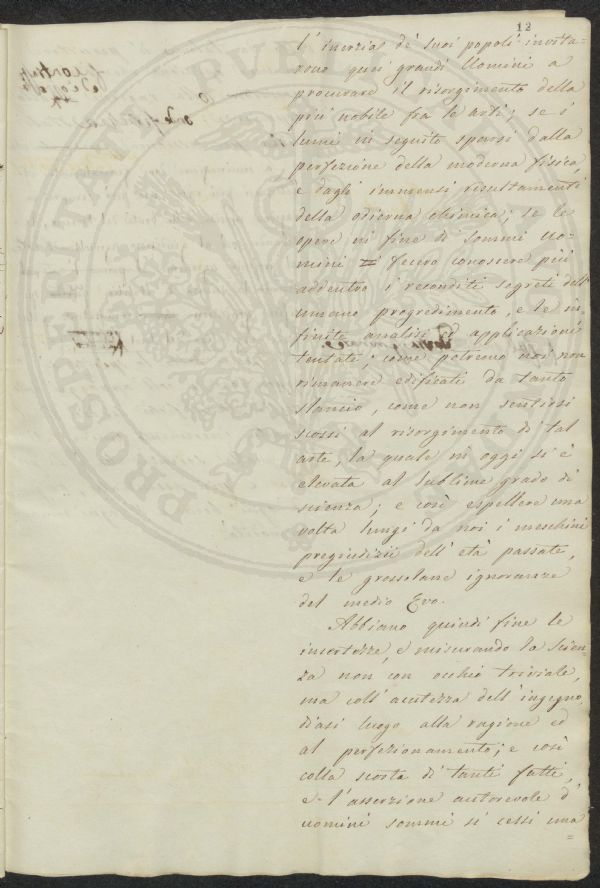 12
l'inerzia de' suoi popoli invita=
rono quei grandi Uomini a
procurare il risorgimento della
più nobile fra le arti; se i
lumi in seguito sparsi dalla
perfezione della moderna fisica
e dagli immensi risultamenti
della odierna chimica; se le
opere in fine di sommi uo-
mini fecero conoscere più
addentro i reconditi segreti dell'
umano progredimento, e le in-
finite analisi ed applicazioni
tentate; come potremo noi non
rimanere edificati da tanto
slancio, come non sentirsi
scossi al risorgimento di tal
arte, la quale in oggi si è
elevata al sublime grado di
scienza; e così espellere una
volta lungi da noi i meschini
pregiudizii dell'età passate,
e le grossolane ignoranze
del medio Evo.
Abbiano quindi fine le
incertezze, e misurando la scien-
za non con occhio triviale,
ma coll'acutezza dell'ingegno,
diasi luogo alla ragione ed
al perfezionamento; e così
colla scorta di tanti fatti,
e l'asserzione autorevole d'
uomini sommi si cessi una
=
PROSPERITATI PVBL